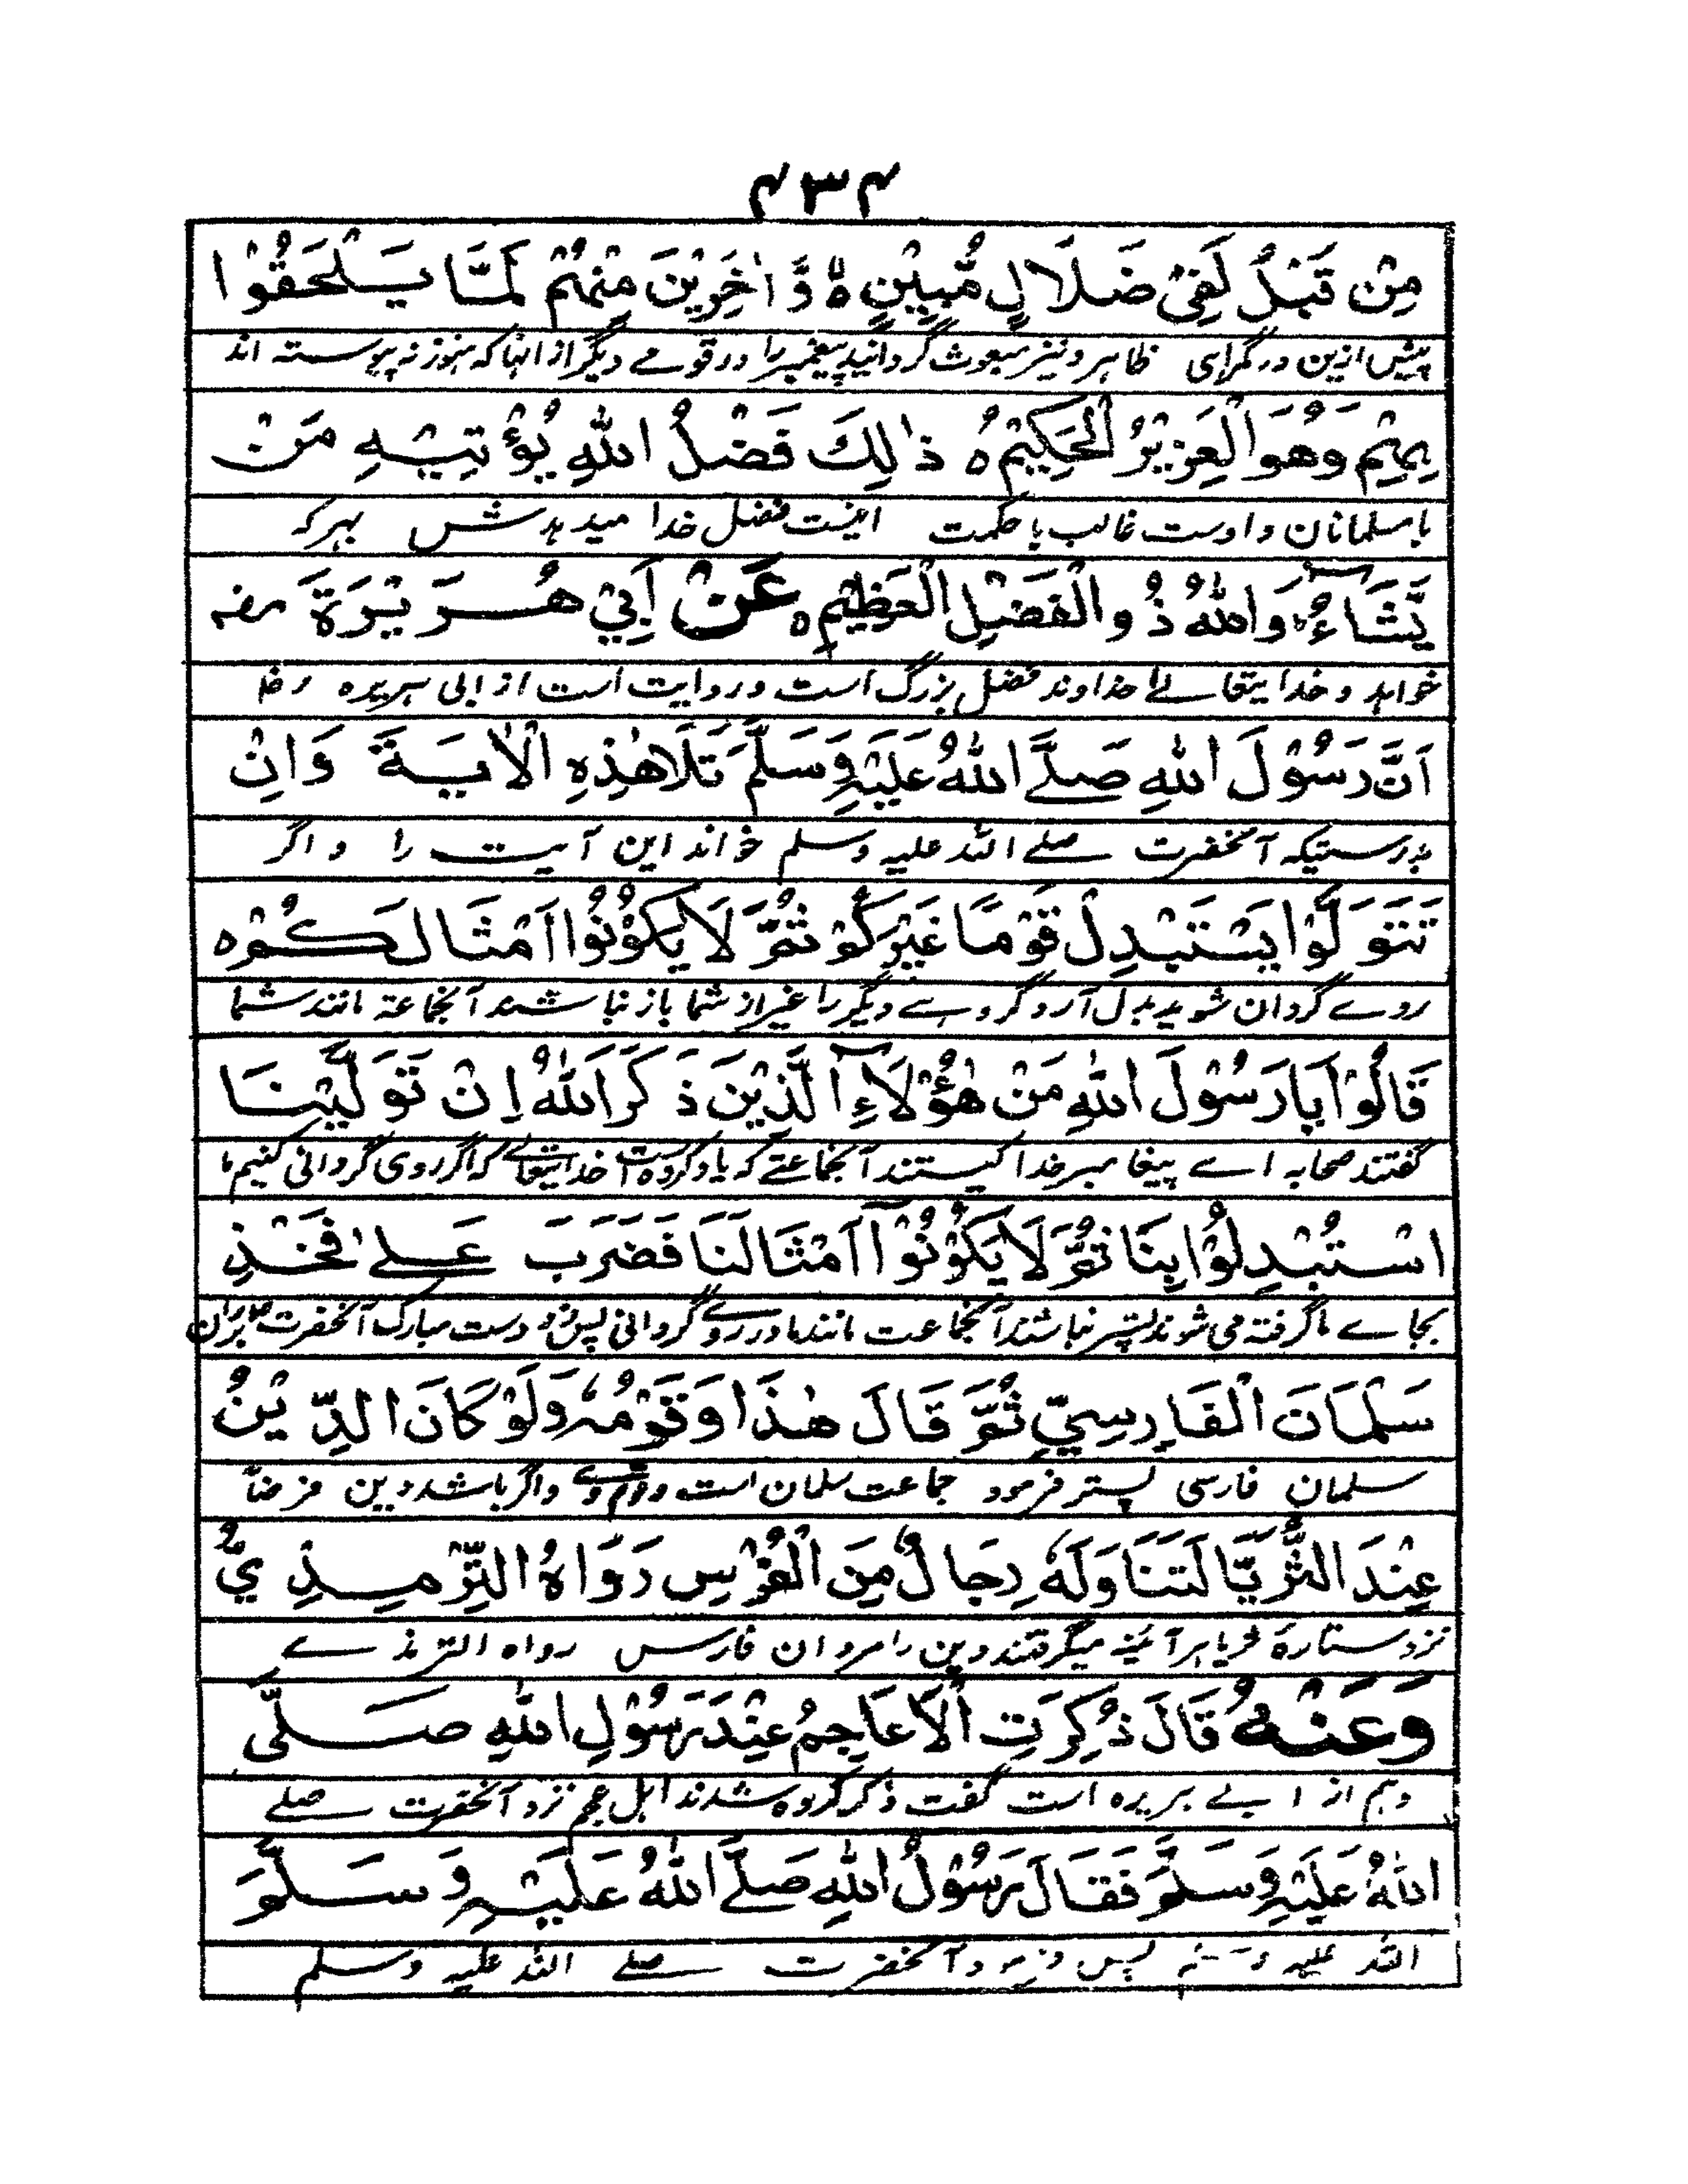 ۴۳۴
مِنْ قَبْلُ لَفِيْ ضَلَالٍ مُّبِيْنٍ ہ وَّاٰخَرِيْنَ مِنْهُمْ لَمَّا يَلْحَقُوْا
پیش ازین در گمراہی ظاہر و نیز مبعوث گردانید پیغمبر را در قومے دیگر از انہا کہ ہنوز نہ پیوستہ اند
بِهِمْ وَهُوَ الْعَزِيْزُ الْحَكِيْمُ ہ ذٰلِكَ فَضْلُ اللّٰهِ يُؤْتِيْهِ مَنْ
با مسلمانان و اوست غالب با حکمت اینست فضل خدا میدہدش بہر کہ
يَّشَآءُ وَاللّٰهُ ذُو الْفَضْلِ الْعَظِيْمِ ہ عَنْ اَبِيْ هُرَيْرَةَ رضہ
خواہد و خدایتعالے خداوند فضل بزرگ است و روایت است از ابی ہریرہ رضا
اَنَّ رَسُوْلَ اللّٰهِ صَلَّے اللّٰهُ عَلَيْهِ وَسَلَّمَ تَلَا هٰذِهِ الْاٰيَةَ وَاِنْ
بدرستیکہ آنحضرت صلے اللہ علیہ وسلم خواند این آیت را و اگر
تَتَوَلَّوْا يَسْتَبْدِلْ قَوْمًا غَيْرَكُمْ ثُمَّ لَا يَكُوْنُوْا اَمْثَالَكُمْ ہ
روے گردان شوید بدل آرد گروہے دیگر را غیر از شما باز نباشند آنجماعة مانند شما
قَالُوْا يَا رَسُوْلَ اللّٰهِ مَنْ هٰؤُلَآءِ الَّذِيْنَ ذَكَرَ اللّٰهُ اِنْ تَوَلَّيْنَا
گفتند صحابہ اے پیغامبر خدا کیستند آنجماعتے کہ یاد کردہ است خدایتعالے کہ اگر روی گردانی کنیم ما
اسْتُبْدِلُوْا بِنَا ثُمَّ لَا يَكُوْنُوْآ اَمْثَالَنَا فَضَرَبَ عَلٰے فَخِذِ
بجاے ما گرفتہ می شوند پستر نباشند آنجماعت مانند ما در روے گردانی پس زد دست مبارک آنحضرت صلعم بر ران
سَلْمَانَ الْفَارِسِيِّ ثُمَّ قَالَ هٰذَا وَقَوْمُهٗ وَلَوْ كَانَ الدِّيْنُ
سلمان فارسی پستر فرمود جماعت سلمان است و قوم وے و اگر باشد دین فرضاً
عِنْدَ الثُّرَيَّا لَتَنَاوَلَهٗ رِجَالٌ مِنَ الْفُرْسِ رَوَاهُ التِّرْمِذِيُّ
نزد ستارۂ ثریا ہر آئینہ میگرفتند دین را مردان فارس رواہ الترمذے
وَعَنْهُ قَالَ ذُكِرَتِ الْاَعَاجِمُ عِنْدَ رَسُوْلِ اللّٰهِ صَلَّى
وہم از ابے ہریرہ است گفت ذکر کردہ شدند اہل عجم نزد آنحضرت صلے
اللّٰهُ عَلَيْهِ وَسَلَّمَ فَقَالَ رَسُوْلُ اللّٰهِ صَلَّے اللّٰهُ عَلَيْهِ وَسَلَّمَ
اللہ علیہ وسلم پس فرمود آنحضرت صلے اللہ علیہ وسلم